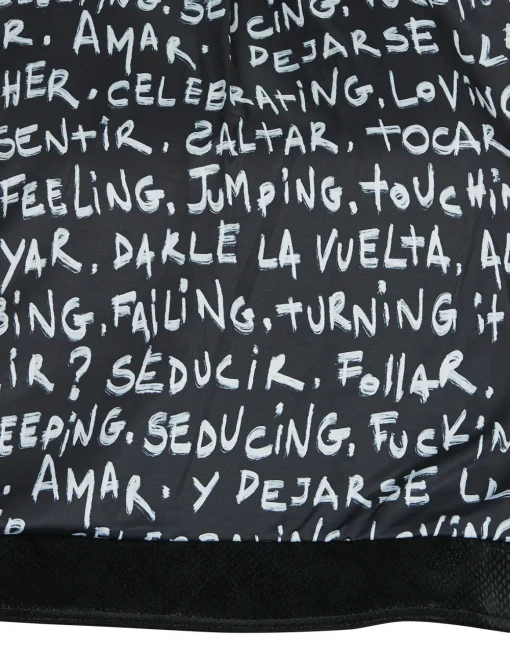 SEDUCING,
R. AMAR. DEJARSE LLE
HER. CELEBRATING, LOVING
SENTIR, SALTAR, TOCAR
FEELING, JUMPING, TOUCHIN
YAR, DARLE LA VUELTA, A
BING, FAILING, TURNING IT
IR? SEDUCIR, FOLLAR,
EEPING, SEDUCING, FUCKIN
. AMAR. Y DEJARSE LL
CELEBRATING LOVING